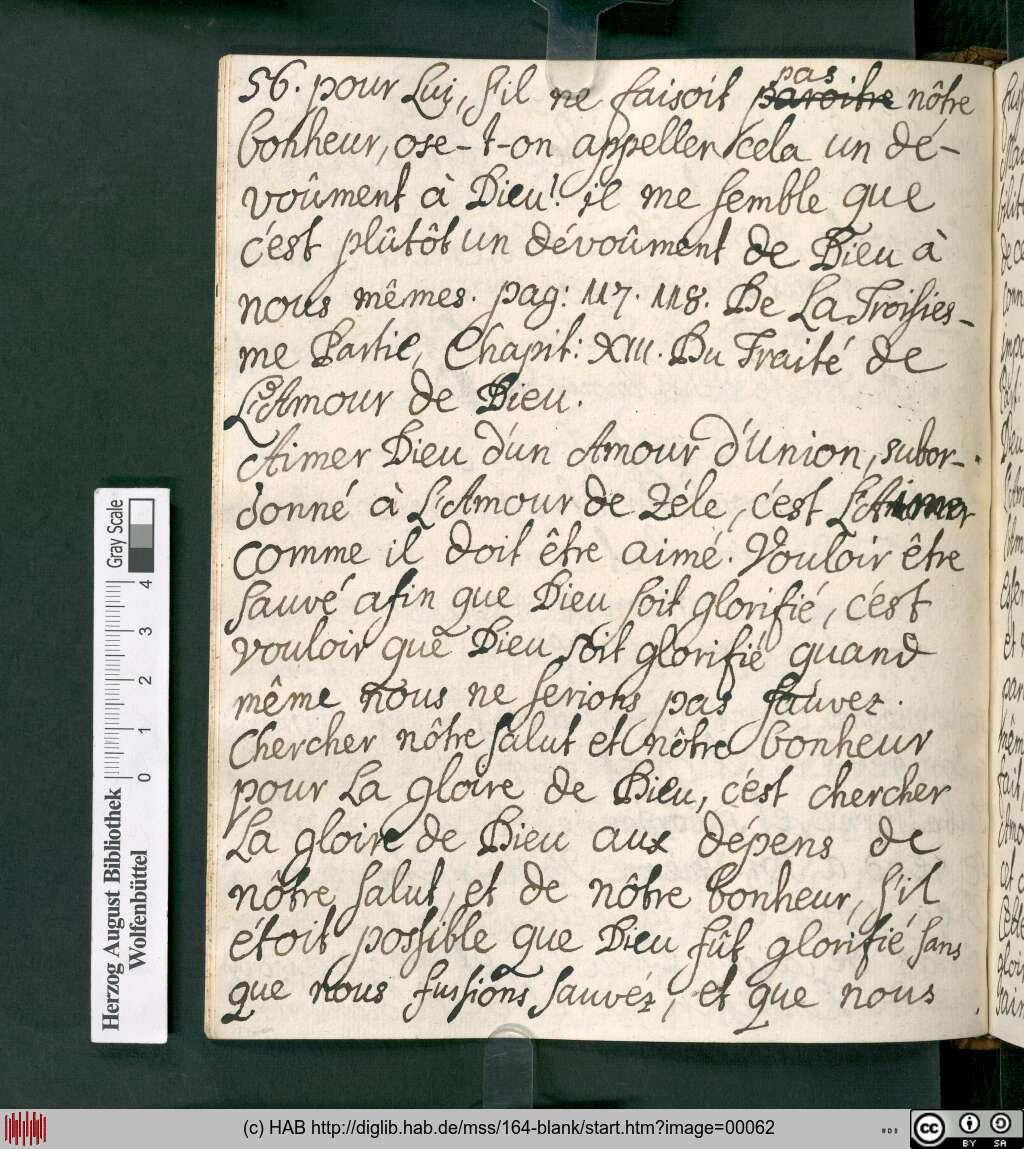 56. pour Lui, s'il ne faisoit pas nôtre
bonheur, ose-t-on appeller cela un dé-
voûment à Dieu! il me semble que
c'est plûtôt un dévoûment de Dieu à
nous mêmes. pag: 117. 118. De La Troisies-
me Partie, Chapit: XIII. Du Traité de
L'Amour de Dieu.
Aimer Dieu d'un Amour d'Union, subor-
donné à L'Amour de Zéle, c'est L'Aimer
comme il doit être aimé. Vouloir être
sauvé afin que Dieu soit glorifié, c'est
vouloir que Dieu soit glorifié quand
même nous ne serions pas sauvez.
Chercher nôtre salut et nôtre bonheur
pour La gloire de Dieu, c'est chercher
La gloire de Dieu aux dépens de
nôtre salut, et de nôtre bonheur, s'il
étoit possible que Dieu fût glorifié sans
que nous fussions sauvéz, et que nous
Gray Scale
0 1 2 3 4
Herzog August Bibliothek
Wolfenbüttel
(c) HAB http://diglib.hab.de/mss/164-blank/start.htm?image=00062
CC BY SA